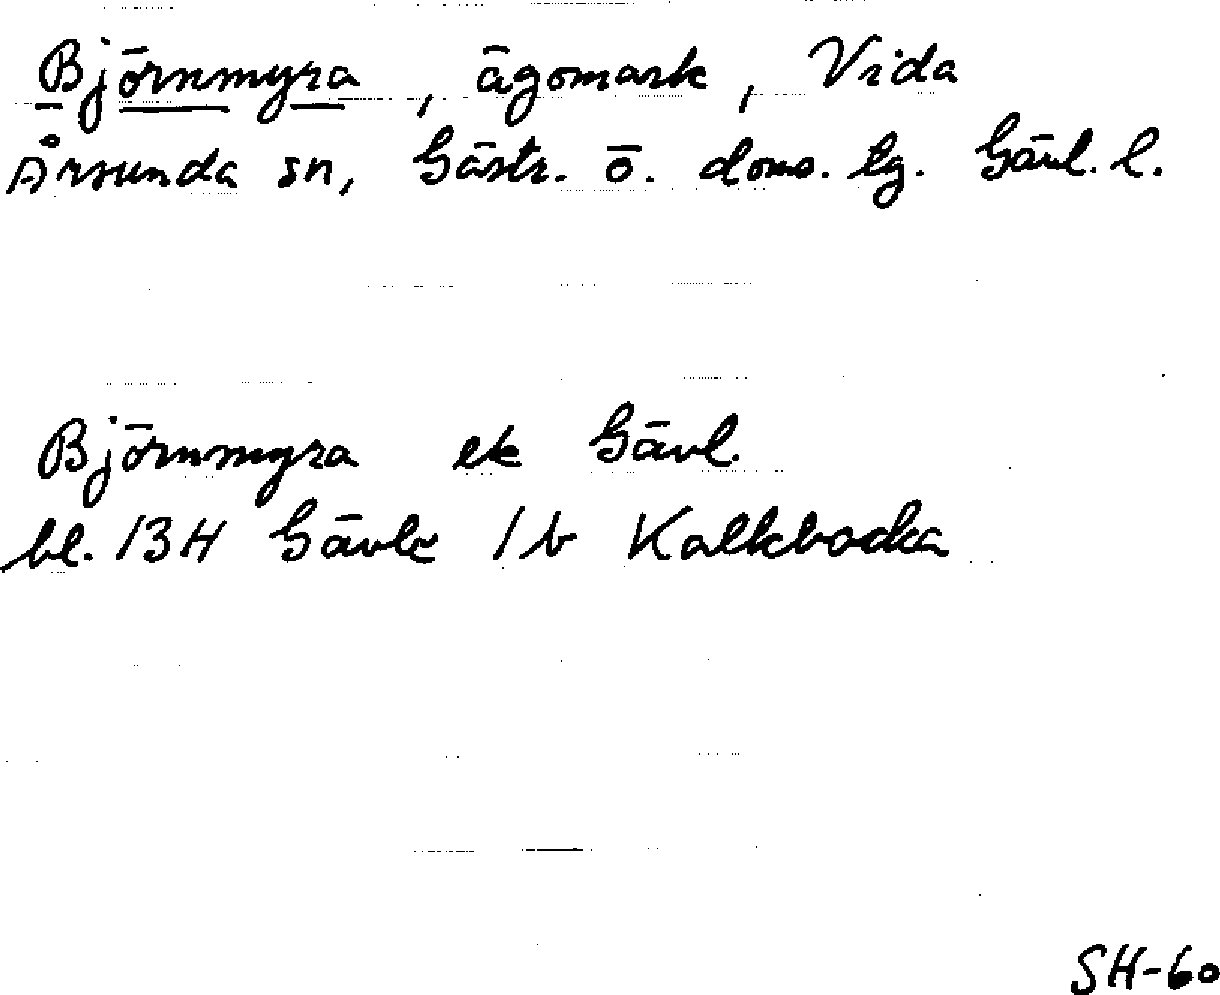 Björnmyra, ägomark, Vida
Årsunda sn, Gästr. ö. doms. lg. Gävl. l.
Björnmyra ek Gävl.
bl. 13H Gävle 1b Kalkbacka
SH-60